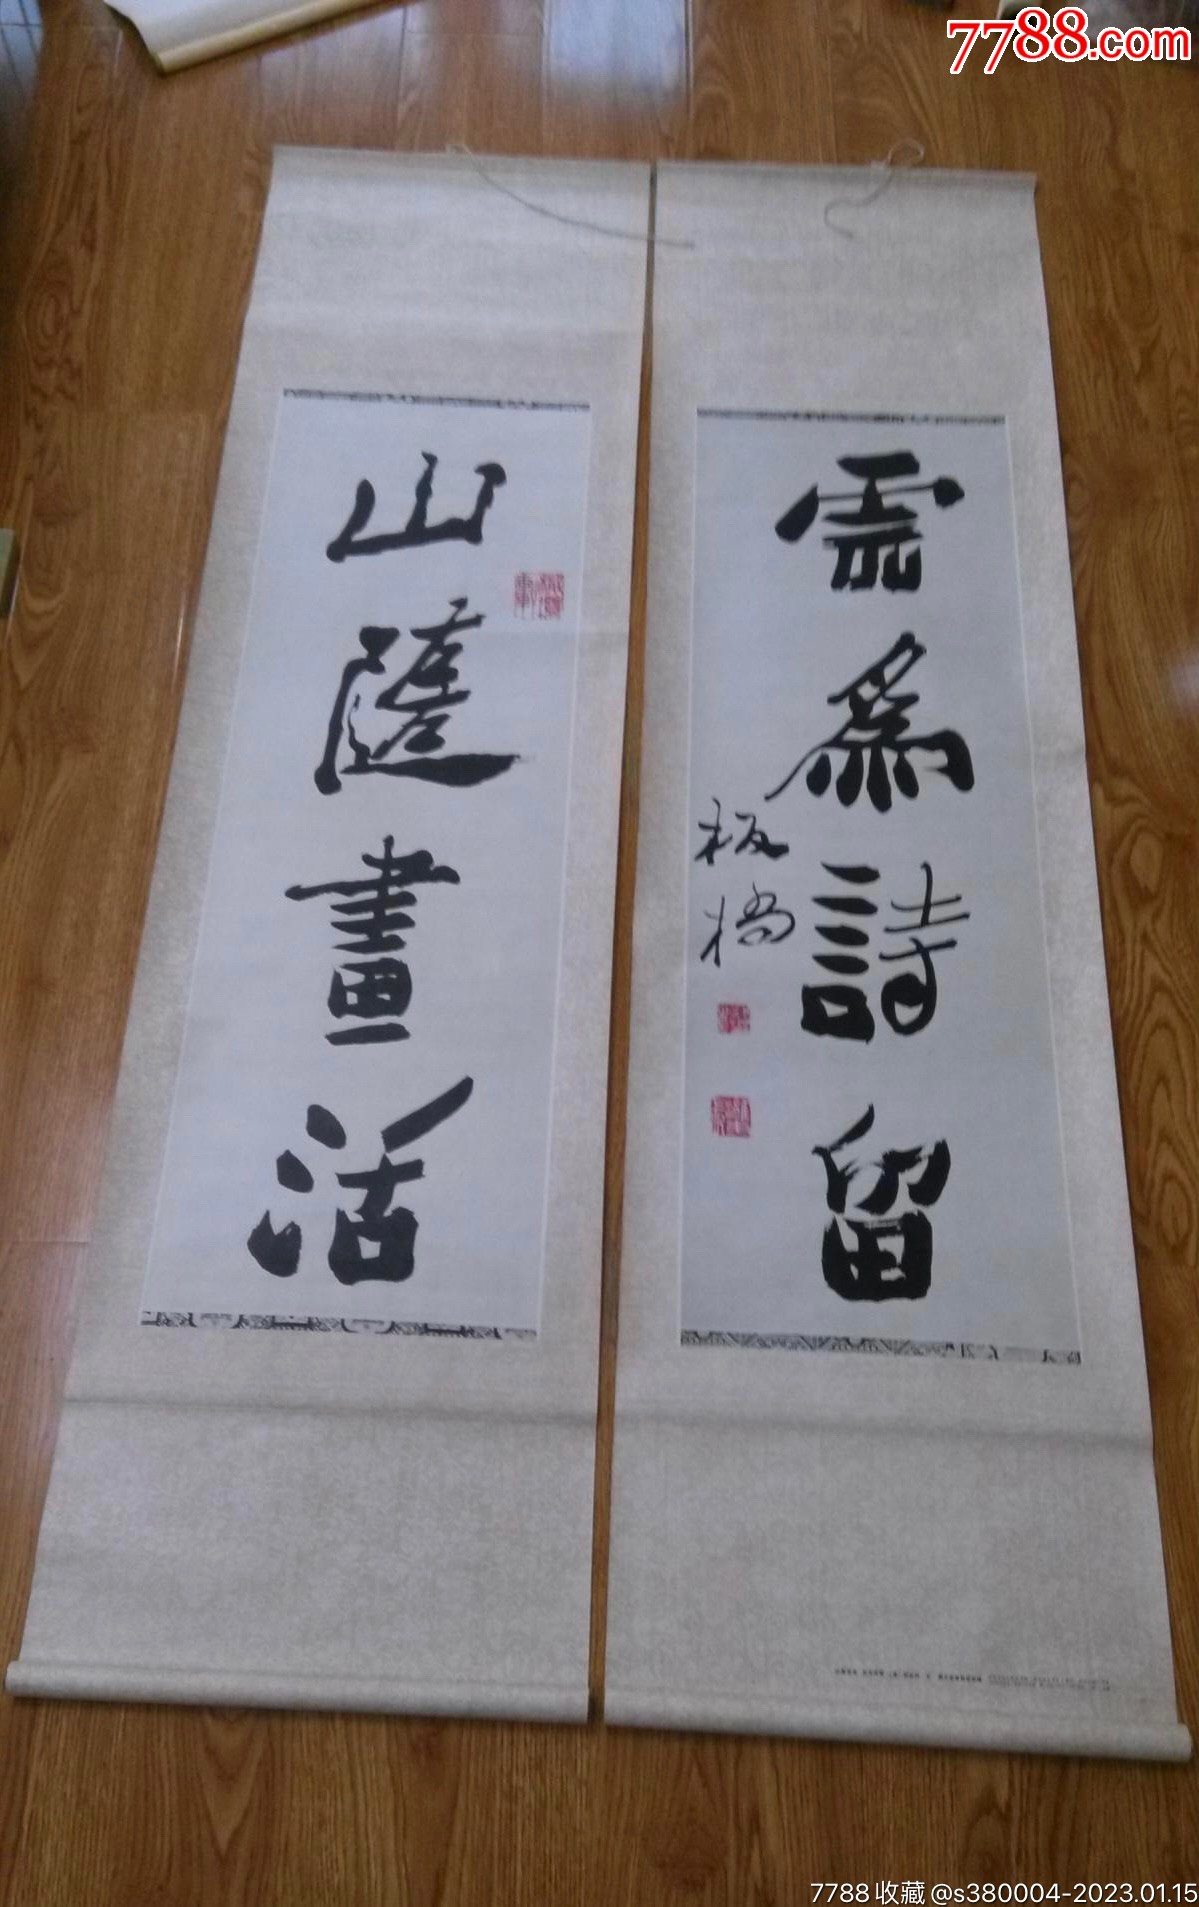 7788.com
山隨畫活
雲爲詩留
板橋
7788收藏@s380004-2023.01.15